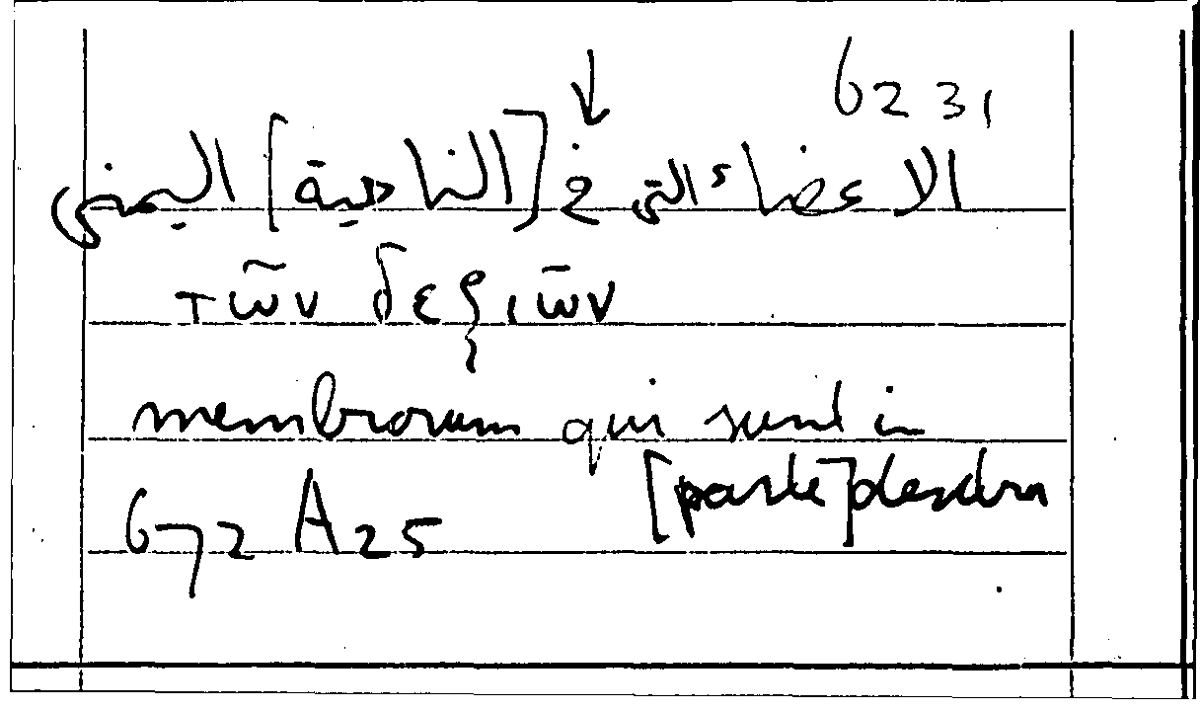 6231
↓
الاعضاء التى في [الناحية] اليمنى
τῶν δεξιῶν
membrorum qui sunt in
[parte] dextra
672 A25